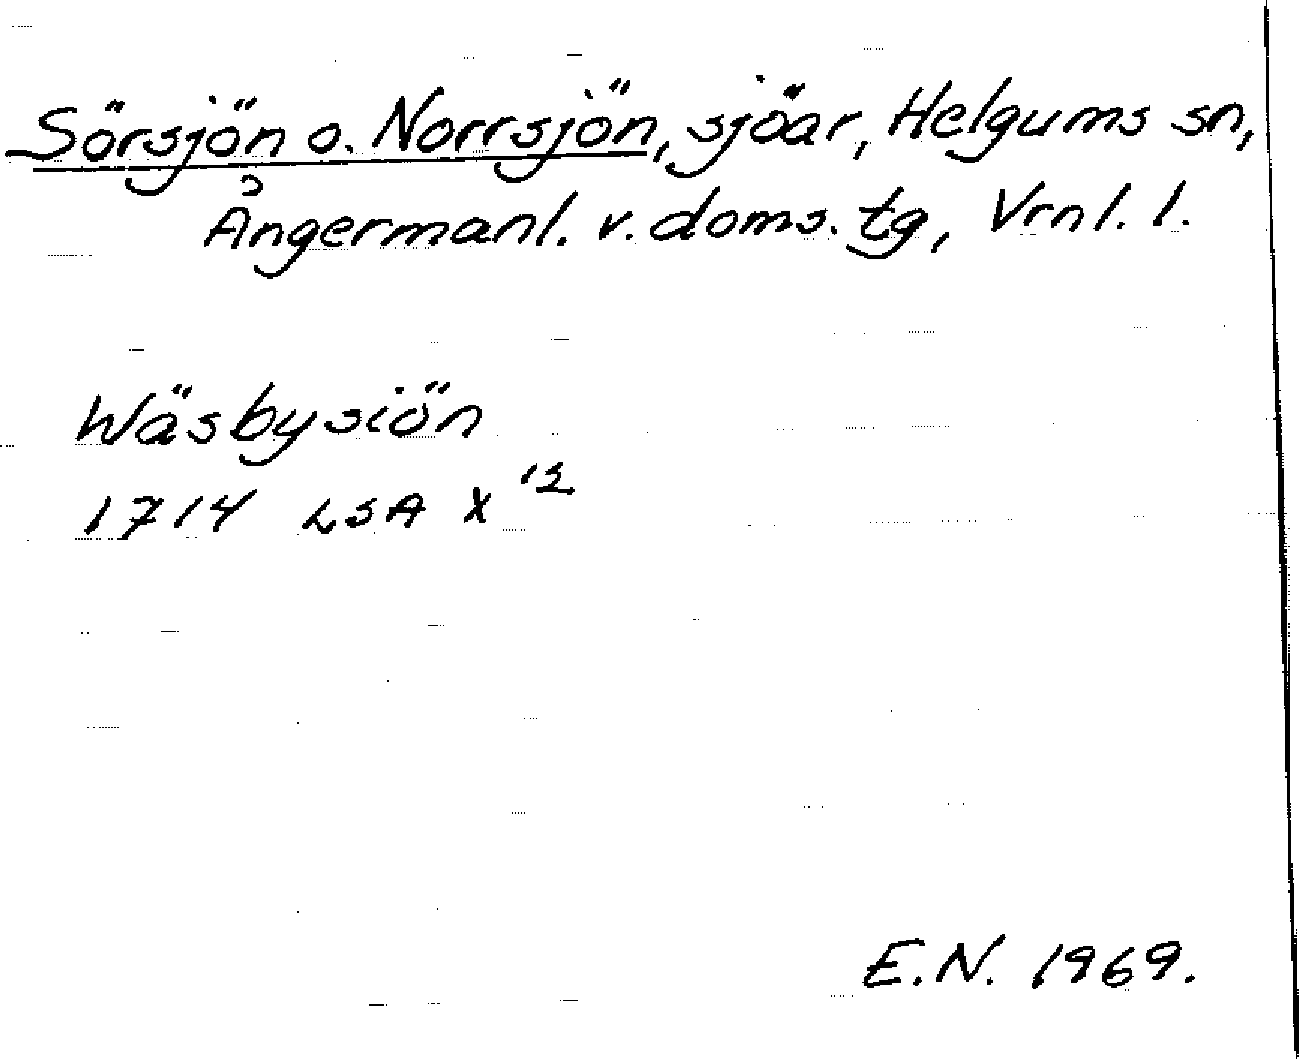 Sörsjön o. Norrsjön, sjöar, Helgums sn,
Ångermanl. v. doms. tg, Vrnl. l.
Wäsbysiön
1714 LSA X 12
E.N. 1969.